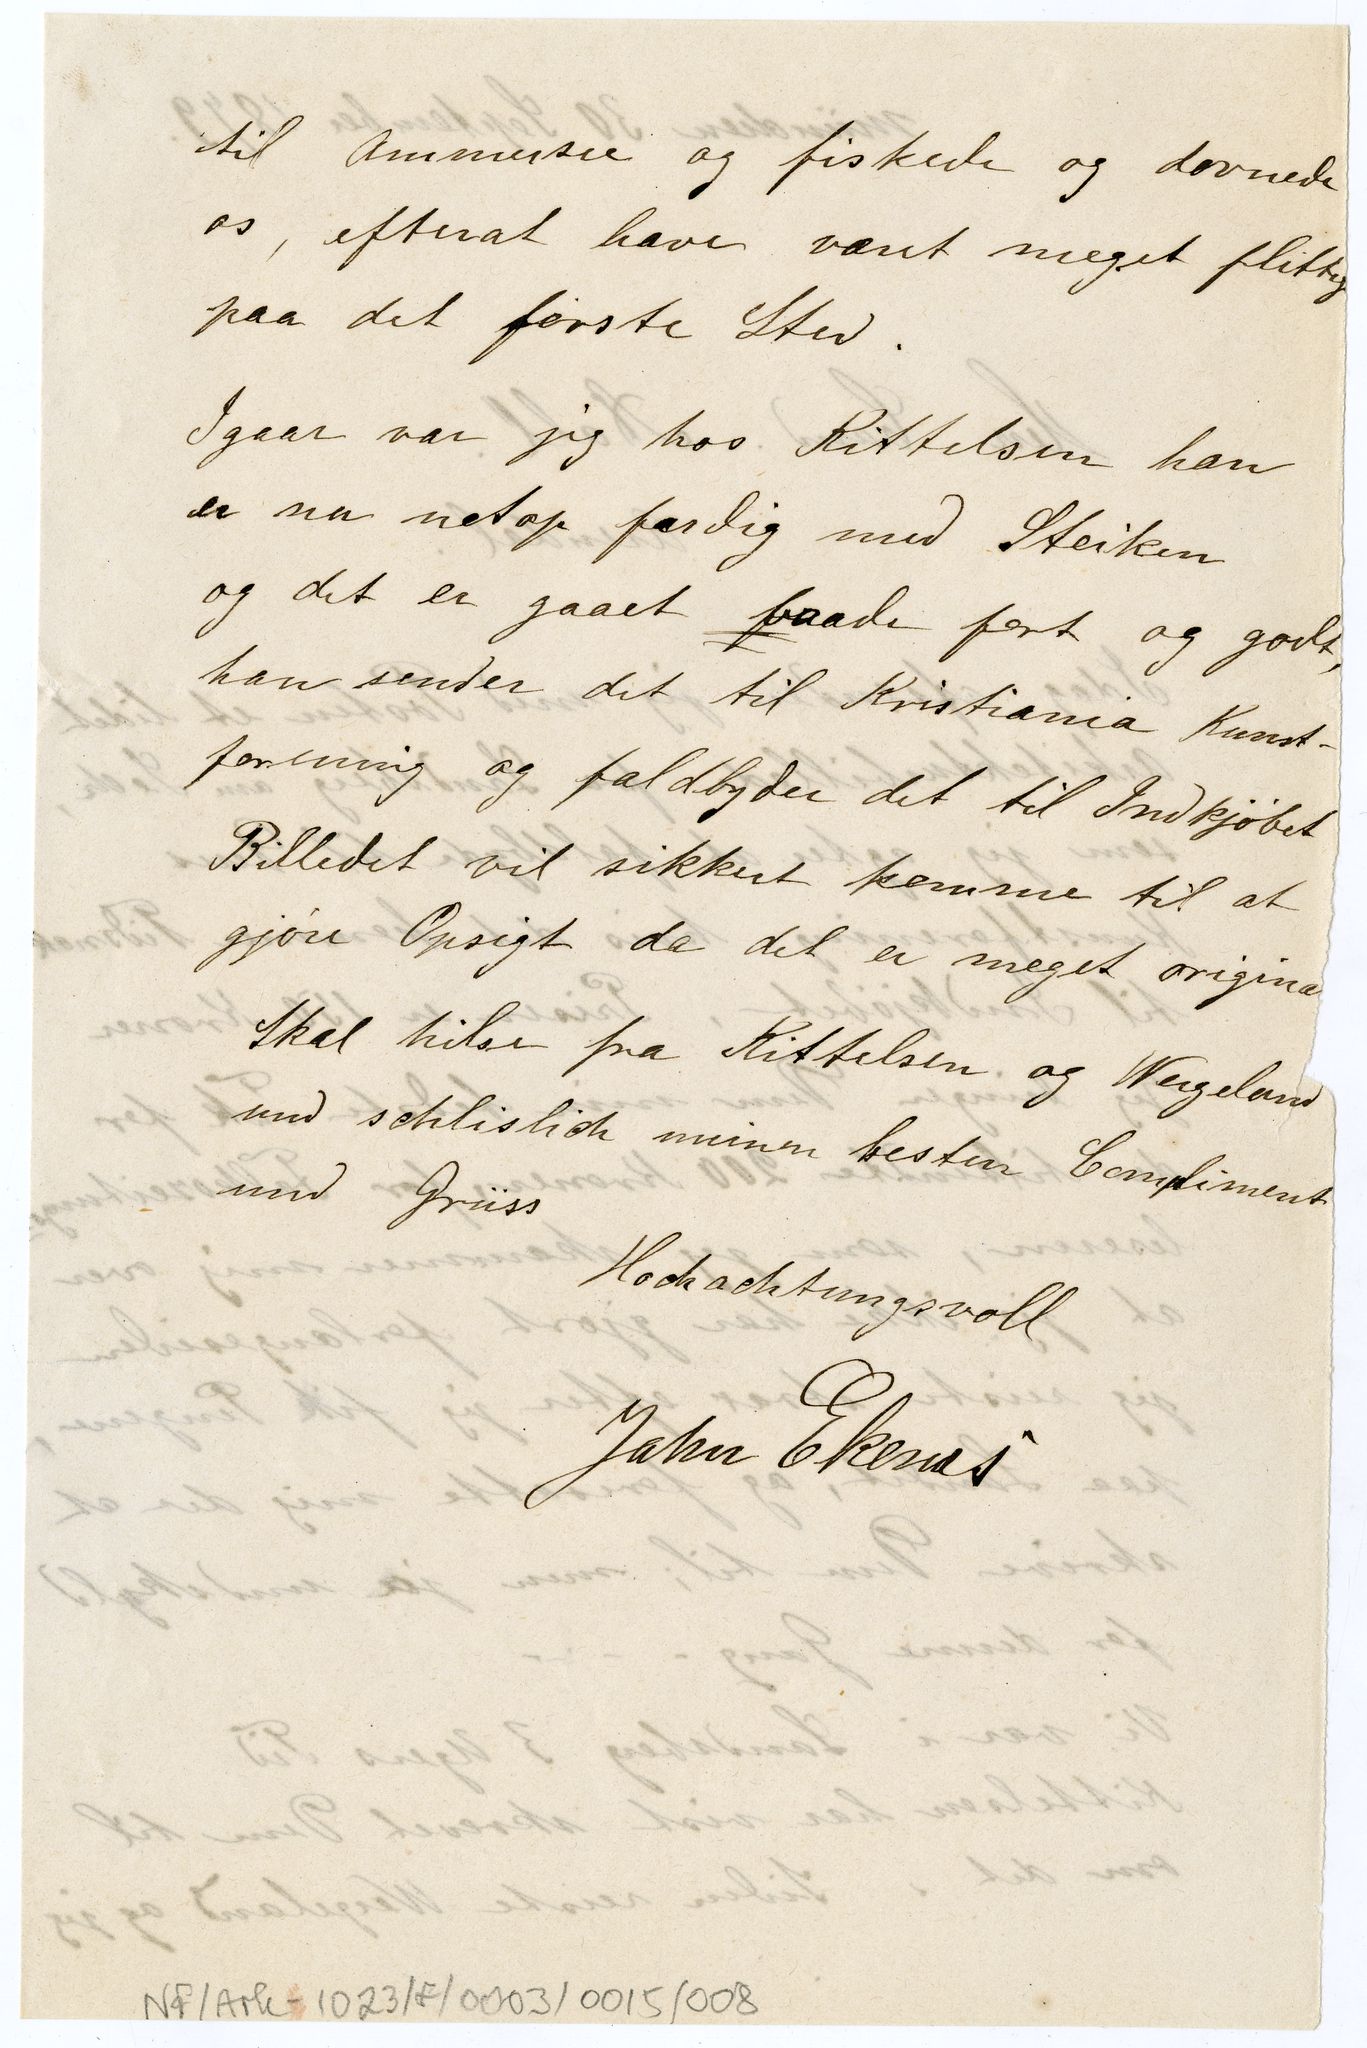 til Ammersee og fiskede og dovnede
os, efterat have været meget flittig
paa det første Sted.
Igaar var jeg hos Kittelsen han
er nu netop færdig med Steiken
og det er gaaet baade fort og godt,
han sender det til Kristiania Kunst-
forening og faldbyder det til Indkjøbet
Billedet vil sikkert komme til at
gjøre Opsigt da det er meget origina
Skal hilse fra Kittelsen og Wergeland
und schlislich meinen besten Compliment
und Grüss
Hochachtungsvoll
Jahn Ekenæs
NF/Ark-1023/F/0003/0015/008